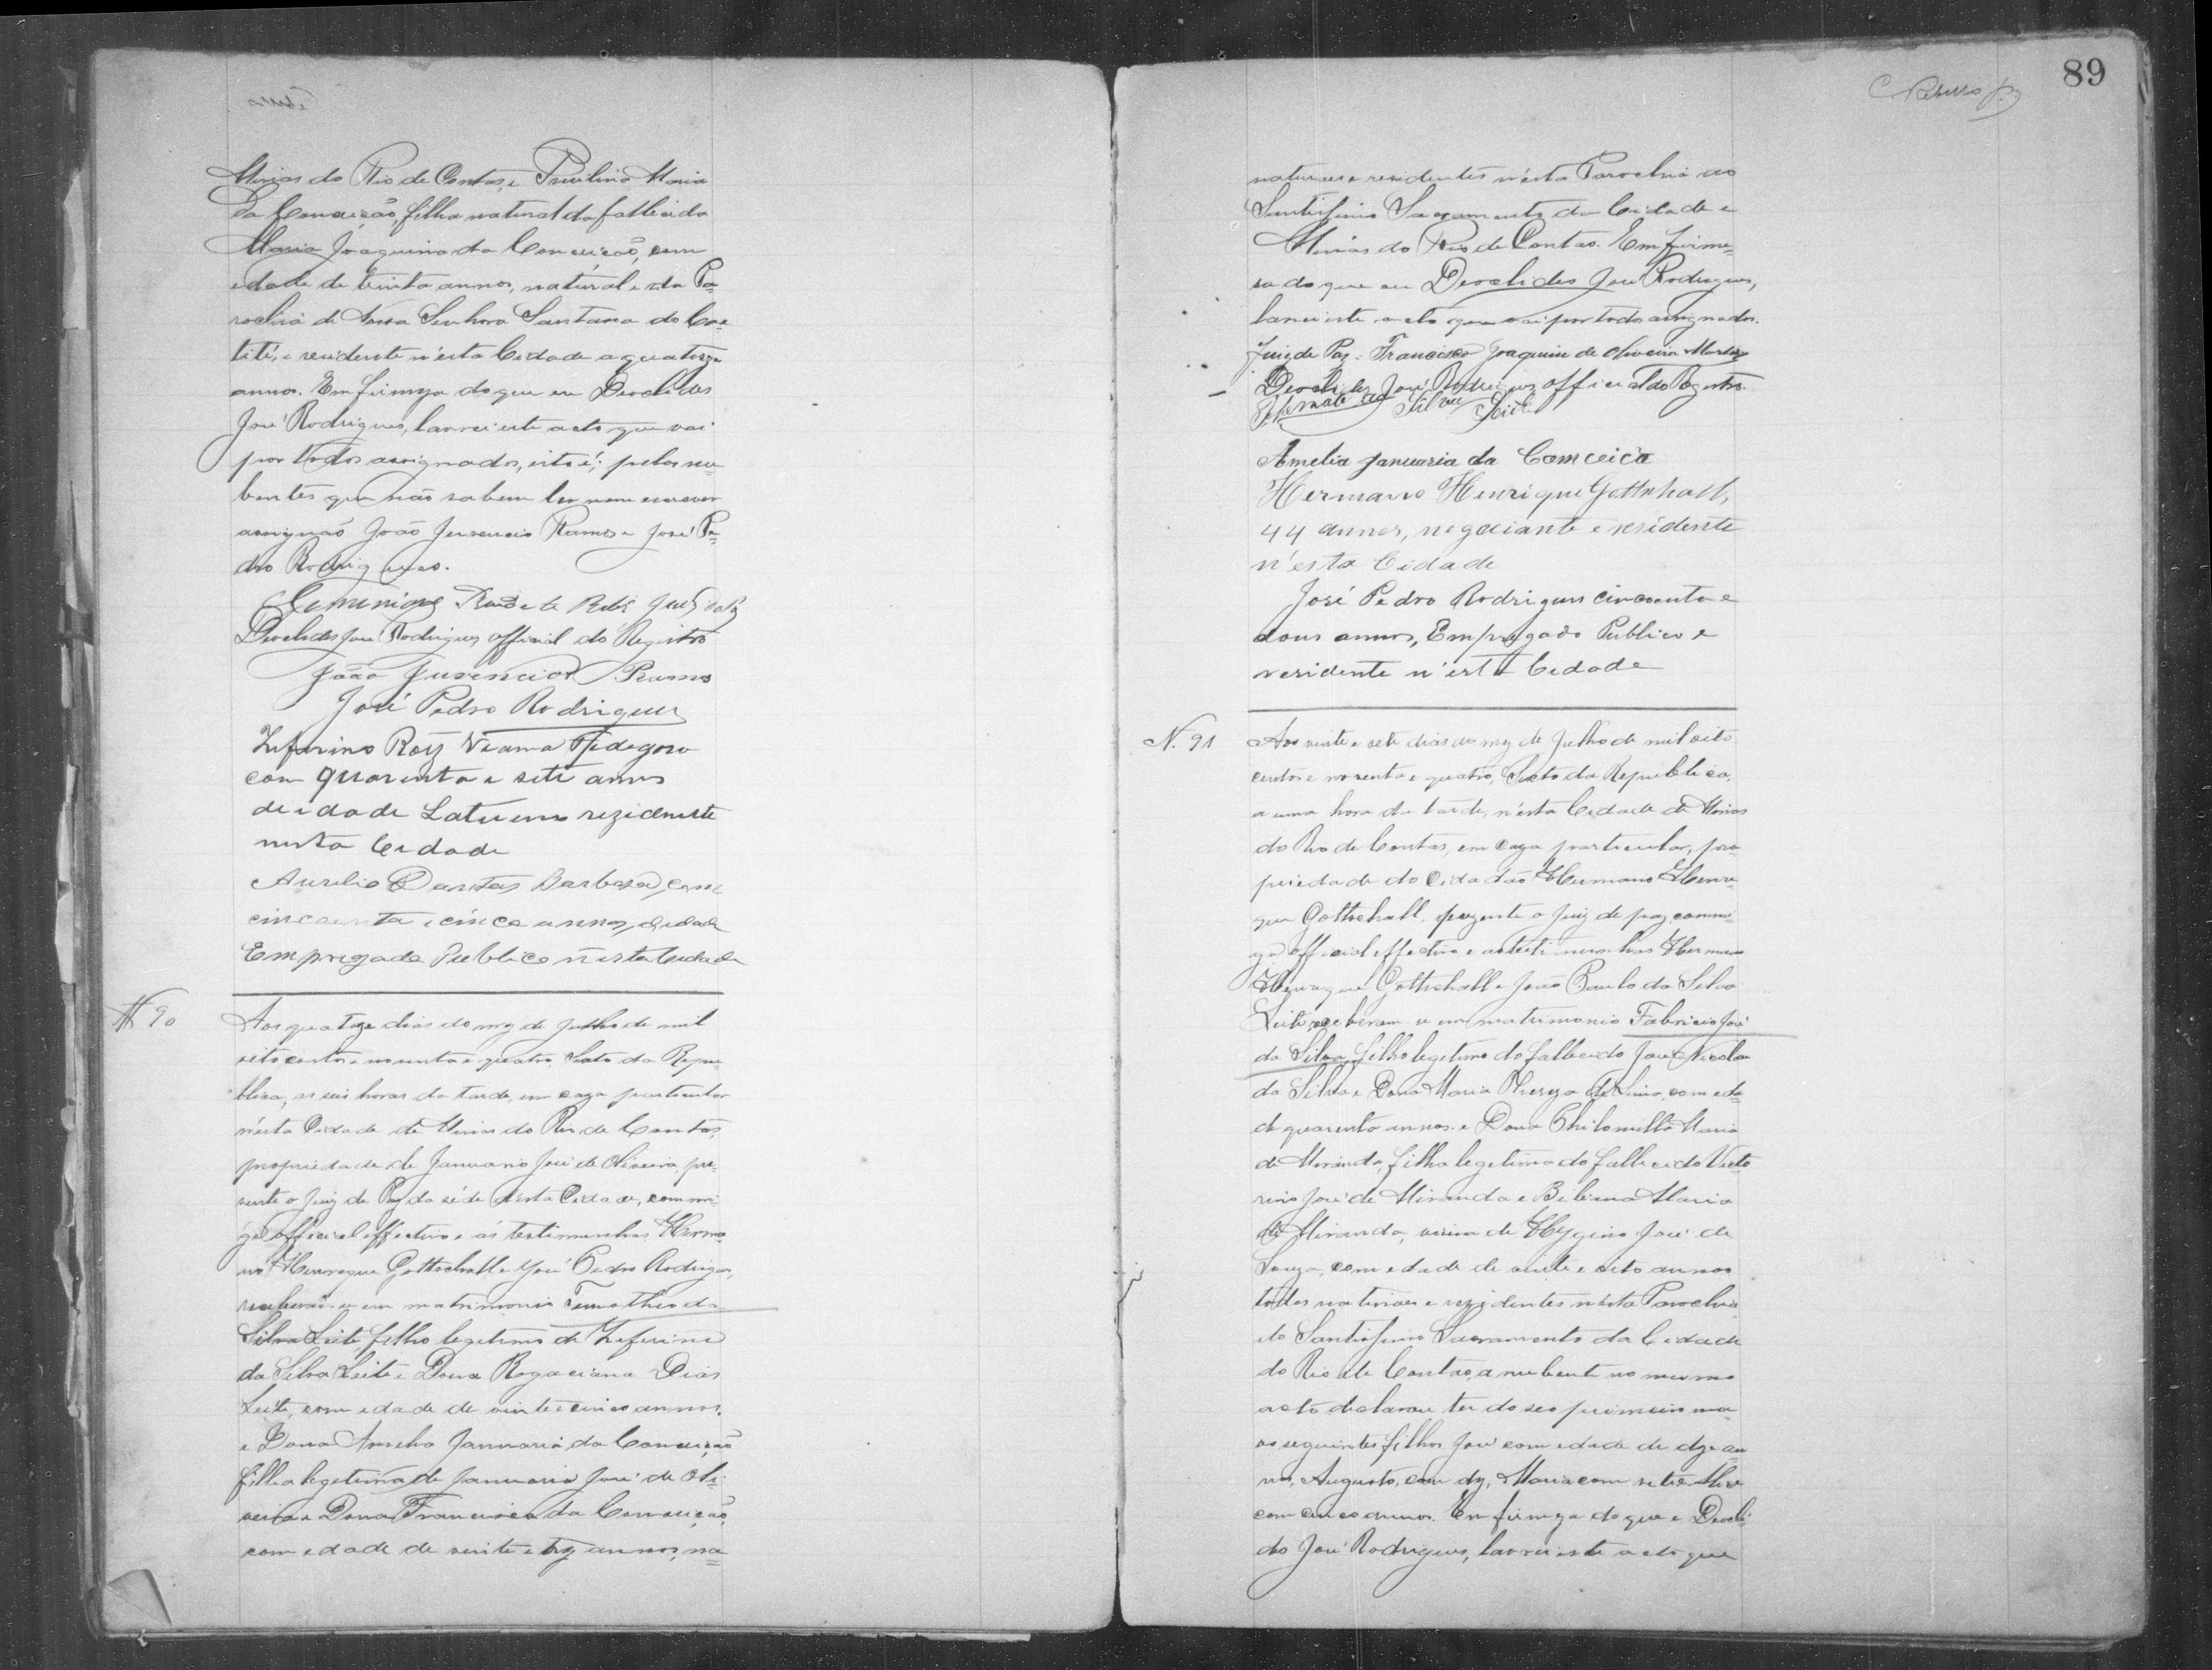 Minas do Rio de Contas, e Maria
da Conceição, filha natural da fallecida
Maria Joaquina da Conceição, com
edade de trinta annos, natural e da Pa-
rochia de Nossa Senhora Santana do Cae-
tité, e residente n'esta Cidade a quatorze
annos. Em firmeza do que eu Deoclides
José Rodrigues, lavrei este acto que vai
por todos assignados, isto é; pelos nu-
bentes que não sabem ler nem escrever
assignão João Juvencio Ramos e José Pe-
dro Rodrigues.
Juiz de Paz
Deoclides José Rodrigues, official do Registro
João Juvencio Ramos
José Pedro Rodrigues
Zeferino Roiz Vianna
com quarenta e sete annos
de idade rezidente
nesta Cidade
Aurelio Dantas Barbosa, com
cincoenta e cinco annos, de idade
Empregado Publico nesta Cidade
N 90
Aos quatorze dias do mez de Julho de mil
oito centos e noventa e quatro, Sexto da Repu-
blica, as seis horas da tarde, em caza particular
n'esta Cidade de Minas do Rio de Contas,
propriedade de Januario José de Oliveira, pre-
sente o Juiz de Paz da séde d'esta Cidade, commi-
go official effectivo e as testimunhas Herma-
no Henrique Gottschall e José Pedro Rodrigues,
receberão-se em matrimonio Timotheo da
Silva Leite, filho legitimo de Zeferino
da Silva Leite e Dona Rogaciana Dias
Leite, com edade de vinte e cinco annos,
e Dona Amelia Januaria da Conceição
filha legitima de Januario José de Oli-
veira e Dona Francisca da Conceição,
com edade de vinte e trez annos, na-
89
naturaes e residentes n'esta Parochia do
Santissimo Sacramento da Cidade e
Minas do Rio de Contas. Em firme-
sa do que eu Deoclides José Rodrigues,
lavrei este acto que vai por todos assignados.
Juiz de Paz Francisco Joaquim de Oliveira Martins
Deoclides José Rodrigues official do Registro.
Silva Leite
Amelia Januaria da Comceicã
Hermano Henrique Gottschall,
44 annos, negociante e residente
n'esta Cidade
José Pedro Rodrigues cincoenta e
dous annos, Empregado Publico e
residente n'esta Cidade
N. 91
Aos vinte e sete dias do mez de Julho de mil oito
centos e noventa e quatro, Sexto da Republica,
a uma hora da tarde, n'esta Cidade de Minas
do Rio de Contas, em caza particular, pro-
priedade do Cidadão Hermano Henri-
que Gottschall, prezente o Juiz de paz commi-
go official effectivo e as testimunhas Hermano
Henrique Gottschall e João Paulo da Silva
Leite, receberam-se em matrimonio Fabricio José
da Silva, filho legitimo do fallecido José Nicolau
da Silva e Dona Maria Thereza de Lima, com eda-
de quarenta annos e Dona Philomilla Maria
de Miranda, filha legitima do fallecido Victo-
rino José de Miranda e Bibiana Maria
de Miranda, viuva de Hygino José de
Souza, com edade de vinte e oito annos
todos naturaes e rezidentes n'esta Parochia
do Santissimo Sacramento da Cidade
do Rio de Contas, a nubente no mesmo
acto declarou ter do seo primeiro ma-
os seguintes filhos José com edade de doze an-
nos, Augusto, com dez, Maria com sete e
com cinco annos. Em firmeza do que eu Deocli-
des José Rodrigues, lavrei este acto que